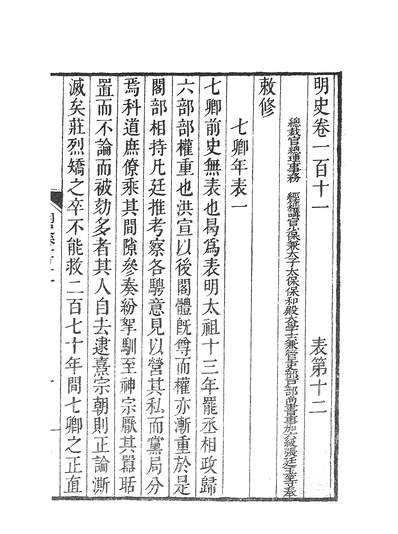 明史卷一百十一　表第十二
總裁官總理事務　經筵講官少保兼太子太保保和殿大學士兼管吏部戶部尚書事加六級張廷玉等奉
敕修
七卿年表一
七卿前史無表也曷爲表明太祖十三年罷丞相政歸
六部部權重也洪宣以後閣體旣尊而權亦漸重於是
閣部相持凡廷推考察各騁意見以營其私而黨局分
焉科道庶僚乘其間隙參奏紛拏馴至神宗厭其囂聒
置而不論而被劾多者其人自去逮熹宗朝則正論澌
滅矣莊烈矯之卒不能救二百七十年間七卿之正直